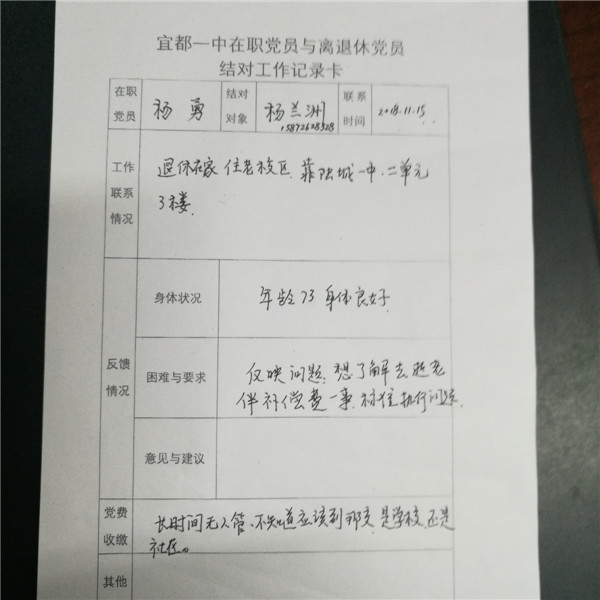 宜都一中在职党员与离退休党员
结对工作记录卡
在职党员 杨勇 结对对象 杨兰洲 联系时间 2018.11.15
15872628328
工作联系情况
退休在家 住老校区 靠陆城一中.二单元
3楼
反馈情况
身体状况 年龄73 身体良好
困难与要求
反映问题: 想了解去逝老
伴补偿费一事. 标准执行问题.
意见与建议
党费收缴
长时间无人管、不知道应该到那交, 是学校, 还是
社区。
其他